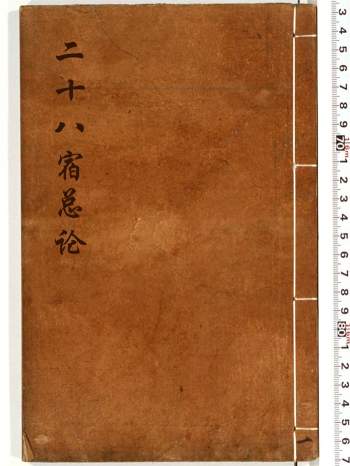 二十八宿总论
一
3
4
5
6
7
8
9
70
1
2
3
4
5
6
7
8
9
80
1
2
3
4
5
6
7